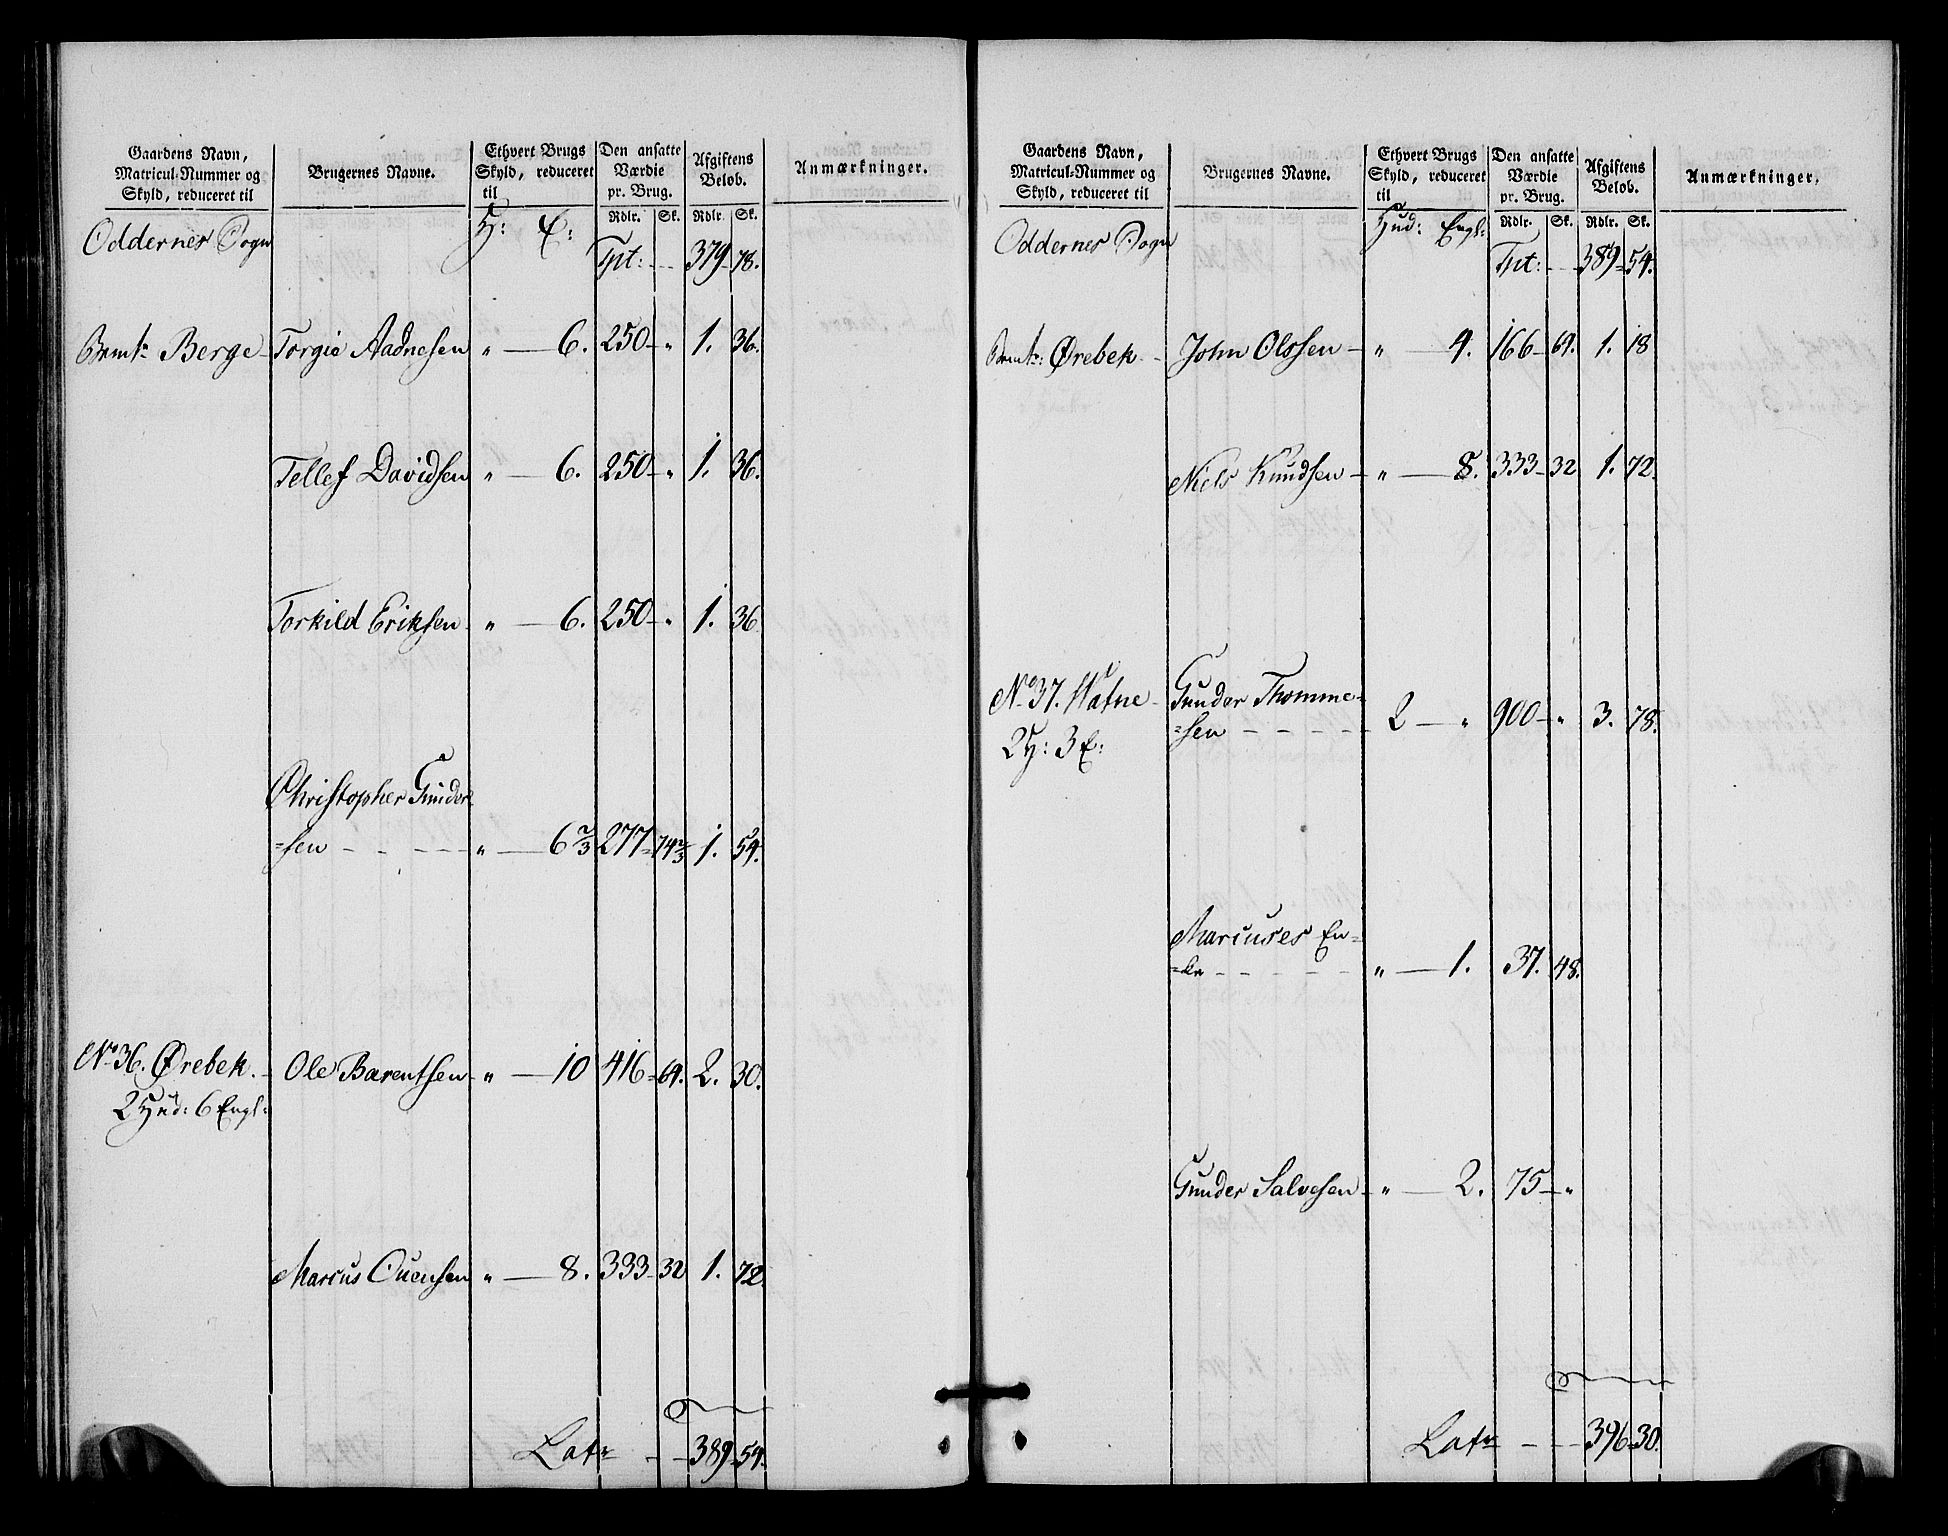 Gaardens Navn, Matricul-Nummer og Skyld, reduceret til | Brugernes Navne. | Ethvert Brugs Skyld, reduceret til | Den ansatte Værdie pr. Brug. | Afgiftens Beløb. | Anmærkninger.
Rdlr. | Sk. | Rdlr. | Sk.
Oddernes Sogn H: E:
Tpt: 379 78.
Bemte Berge Torgie Aadnesen " 6. 250 " 1. 36.
Tellef Davidsen " 6. 250 " 1. 36.
Torkild Eriksen " 6. 250 " 1. 36
Christopher Gunder
=sen " 6 2/3 277 74 2/3 1. 54.
No 36. Ørebek Ole Barentsen " 10 416 64. 2. 30.
2 Hud: 6 Engl:
Marcus Ouensen " 8. 333 32 1. 72.
Latr 389 54.
Gaardens Navn, Matricul-Nummer og Skyld, reduceret til | Brugernes Navne. | Ethvert Brugs Skyld, reduceret til | Den ansatte Værdie pr. Brug. | Afgiftens Beløb. | Anmærkninger.
Rdlr. | Sk. | Rdlr. | Sk.
Oddernes Sogn Hud: Engl:
Tpt: 389 54.
Bemte: Ørebek John Olssen " 4. 166 64. 1. 18
Niels Knudsen " 8. 333 32 1. 72.
No 37. Watne Gunder Thomme=
2 H: 3 E: =sen 2 " 900 " 3. 78.
Marcuses En=
=ke " 1. 37. 48.
Gunder Salvesen " 2. 75 "
Latr 396 30.